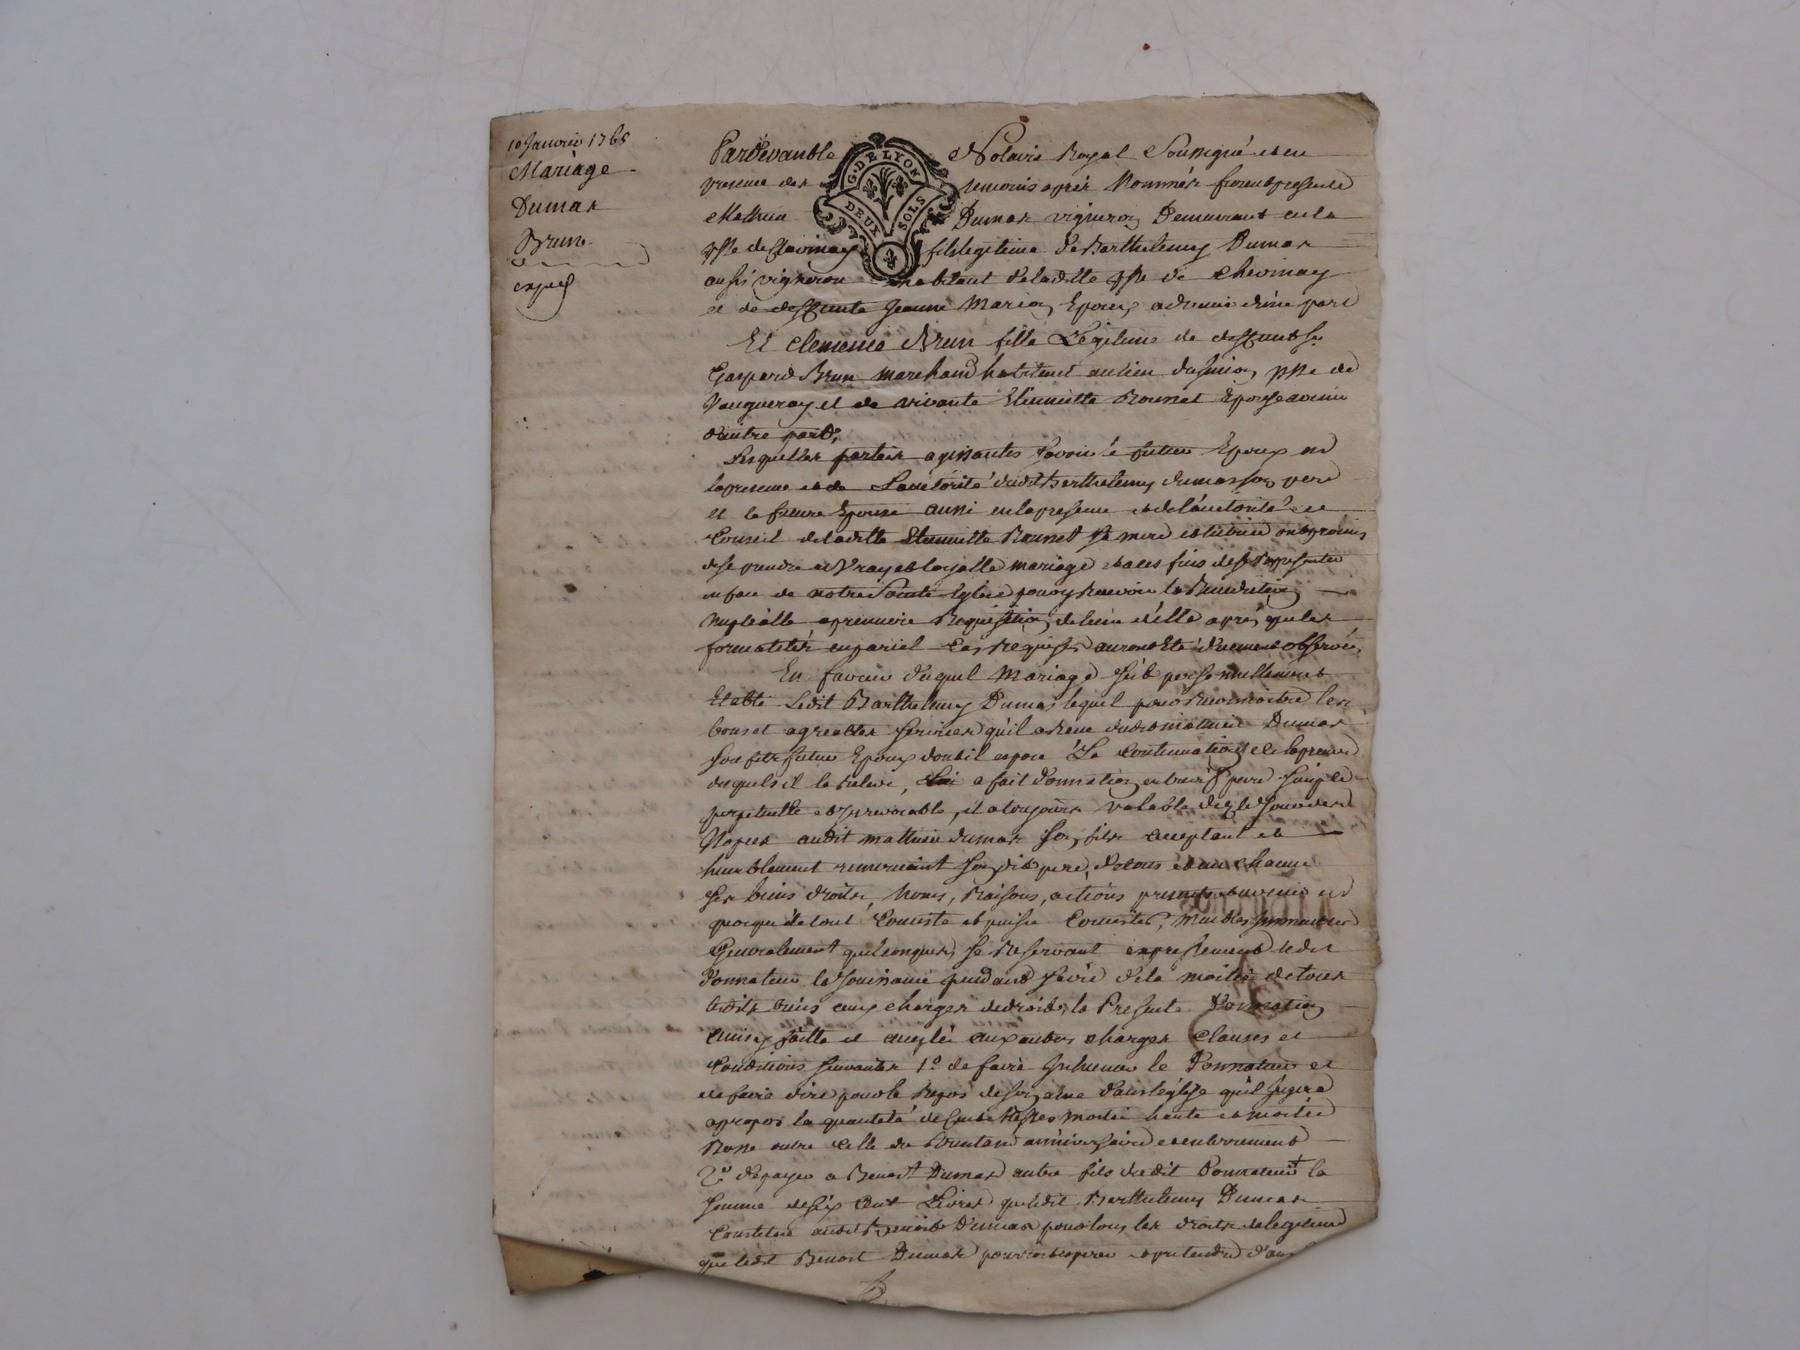 10 Janvier 1765
Mariage
Dumas
Brun
expé
G. DE LYON
DEUX SOLS
Pardevant le Notaire Royal Soussigné et en
presence des temoins apres Nommés furent presents
Mathieu Dumas vigneron Demeurant en la
psse de Chevinay fils legitime de Barthelemy Dumas
aussi vigneron habitant de laditte psse de Chevinay
et de deffunte Jeanne Marion Epoux advenir d'une part
Et Clemence Brun fille Légitime de deffunt Sr
Gaspard Brun marchand habitant au lieu du psse de
Vaugneray et de vivante Etiennette Bounet Epouse avenir
d'autre part,
Lesquelles parties agissantes savoir le futur Epoux en
la presence et de L'autorité dudit Barthelemy Dumas son pere
et la future Epouse aussi en la presence et de l'autorité et
Conseil de laditte Etiennette Bounet sa mere et tutrice ont promis
de se prendre en Vray et loyalle mariage et a ces fins de se Representer
en face de notre Sainte Eglise pour y Recevoir la Benediction
Nuptialle a premiere Requisition de l'un d'elle après que les
formalités en pareil Cas Requises auront Eté duement observées,
En faveur duquel Mariage s'est personnellement
Etabli Ledit Barthelemy Dumas lequel pour Reconnoitre les
bons et agreables services qu'il a Reçu dudit Mathieu Dumas
son fils futur Epoux dont il espere La Continuation de la preuve
desquels il le Releve, a fait Donnation entre vifs pure simple
perpetuelle et irrevocable, et a toujours valable des
Nopces audit Mathieu Dumas son fils acceptant et
humblement remerciant son dit pere, de tous et un chacun
ses biens droits, Noms, Raisons, actions presents et avenir en
quoy que le tout Consiste et puisse Consister, Meubles Immeubles
Generalement quelconques, se Reservant expressement ledit
Donnateur la Jouissance pendant sa vie de la moitié de tous
lesdits biens aux charges de droit la Presente Donnation
ainsy faitte et acceptée aux autres charges Clauses et
Conditions suivantes 1º de faire Inhumer le Donnateur et
de faire dire pour le Repos de son ame dans l'église qu'il jugera
apropos la quantité de Cent Messes moitié haute et moitié
Basse outre celle de Quarantaine anniversaire et enterrement
2º de payer a Benoist Dumas autre fils dudit Donnateur la
somme de six Cent Livres que ledit Barthelemy Dumas
Constitue audit Benoist Dumas pour tous les droits de legitime
que ledit Benoist Dumas pourroit esperer et pretendre d'